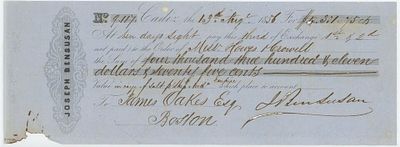 JOSEPH BENSUSAN
No. 9.117. Cadiz, the 13th Augt. 1856 For
At ten days sight pay this third of Exchange 1st & 2d
not paid to the Order of Messrs Howes & Crowell
the Sum of four thousand three hundred & eleven
dollars & seventy five cents
Value in cargo of Salt p. Ship which place to account
To James Oakes Esq
Boston
J Bensusan